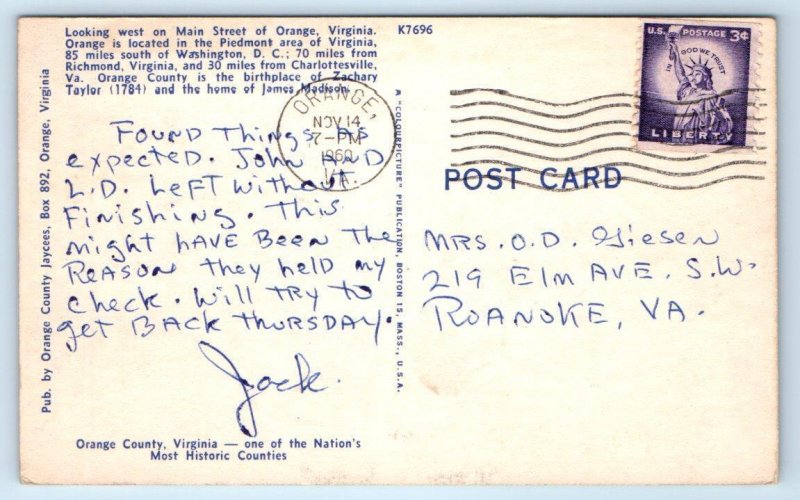 Looking west on Main Street of Orange, Virginia.
Orange is located in the Piedmont area of Virginia,
85 miles south of Washington, D. C.; 70 miles from
Richmond, Virginia, and 30 miles from Charlottesville,
Va. Orange County is the birthplace of Zachary
Taylor (1784) and the home of James Madison.
K7696
Found Things As
expected. John AND
L.D. Left Without
Finishing. This
might HAVE BEEN The
REASON They held my
check. Will TRY to
get BACK THURSDAY.
Jack.
Orange County, Virginia — one of the Nation's
Most Historic Counties
Pub. by Orange County Jaycees, Box 892, Orange, Virginia
A "COLOURPICTURE" PUBLICATION, BOSTON 15, MASS., U.S.A.
ORANGE,
NOV 14
7-PM
1960
VA.
U.S. POSTAGE 3¢
IN GOD WE TRUST
LIBERTY
POST CARD
MRS. O.D. Giesen
219 Elm AVE. S.W.
ROANOKE, VA.